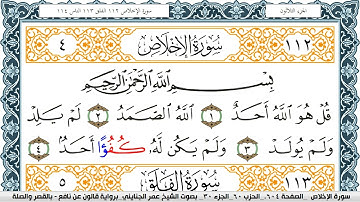 سورة الإخلاص ١١٢ الفلق ١١٣ الناس ١١٤
الجزء الثلاثون
١١٢ سُورَةُ الإِخْلَاصِ ٤
بِسْمِ اللَّهِ الرَّحْمَٰنِ الرَّحِيمِ
قُلْ هُوَ اللَّهُ أَحَدٌ ١ اللَّهُ الصَّمَدُ ٢ لَمْ يَلِدْ
وَلَمْ يُولَدْ ٣ وَلَمْ يَكُن لَّهُ كُفُؤًا أَحَدٌ ٤
١١٣ سُورَةُ الْفَلَقِ ٥
سورة الإخلاص _ الصفحة ٦٠٤ _ الحزب ٦٠ _ الجزء ٣٠ _ بصوت الشيخ عمر الجنايني _ برواية قالون عن نافع - بالقصر والصلة